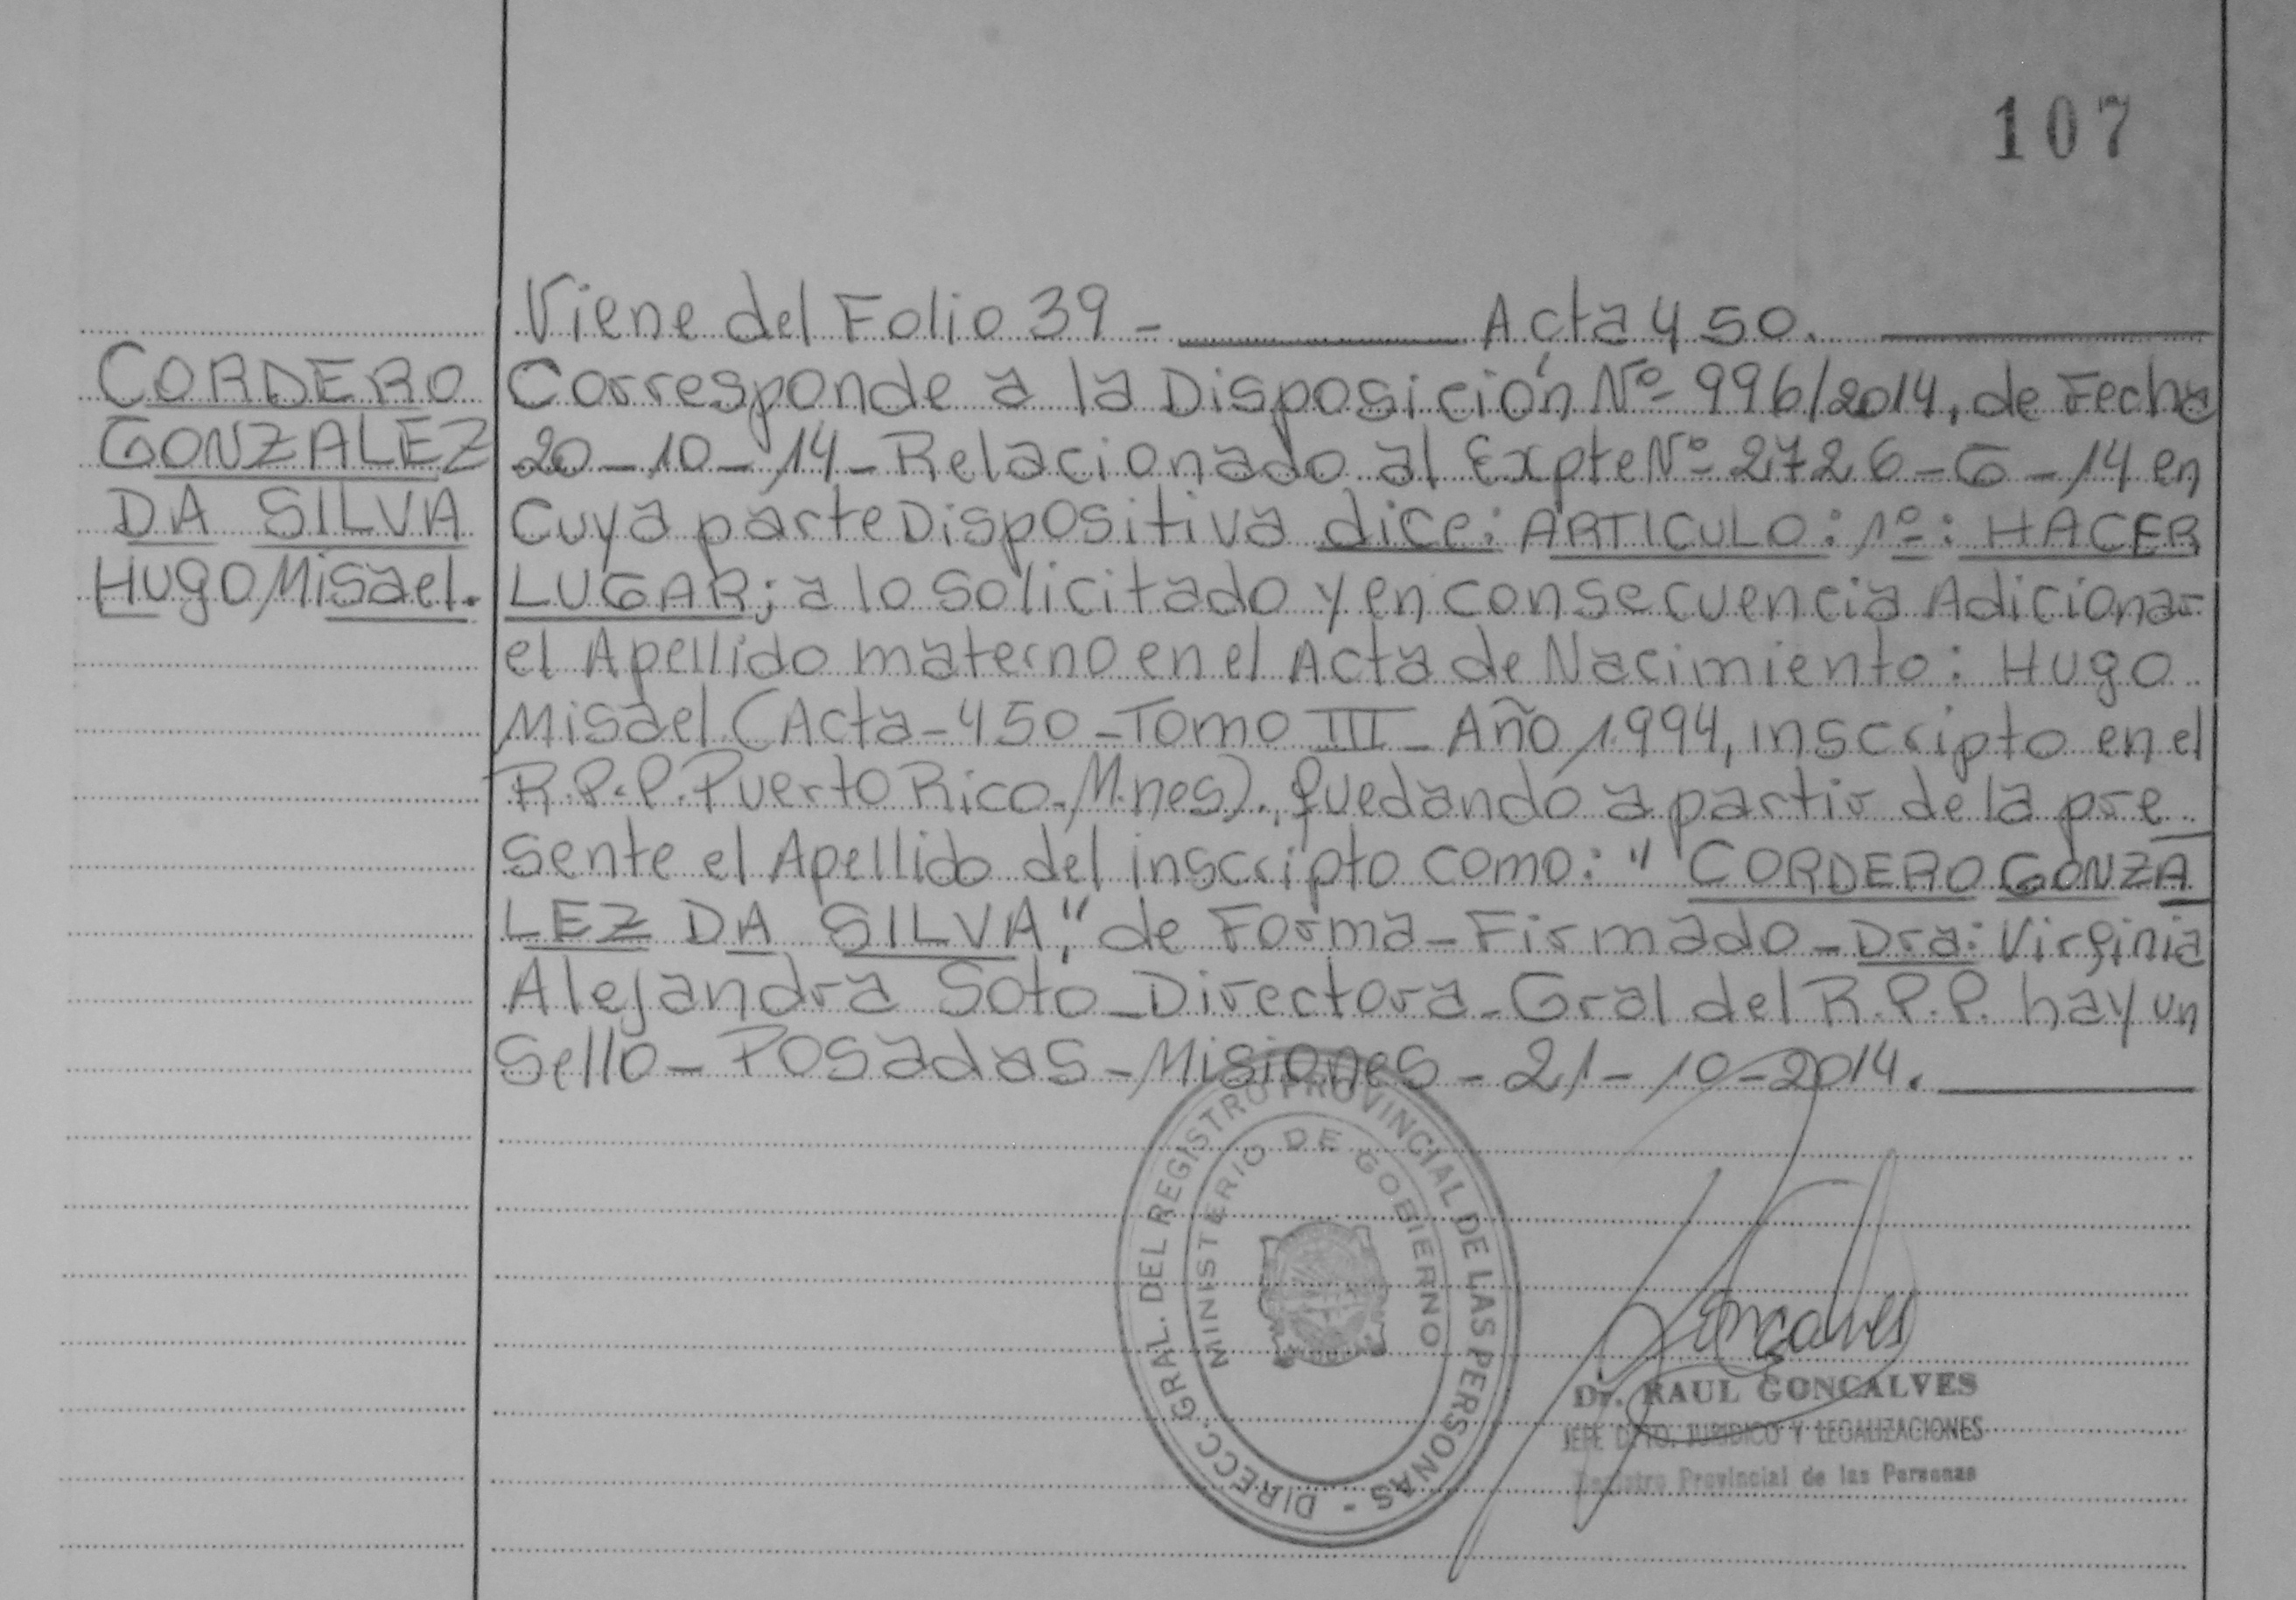 107
Viene del Folio 39 - Acta 450.
CORDERO
GONZALEZ
DA SILVA
Hugo Misael.
Corresponde a la Disposición Nº 996/2014, de Fecha
20-10-14- Relacionado al Expte Nº 2726-G-14 en
Cuya parte Dispositiva dice: ARTICULO: 1º: HACER
LUGAR; a lo solicitado y en consecuencia Adicionar
el Apellido materno en el Acta de Nacimiento: Hugo
Misael (Acta-450-Tomo III- Año 1994, inscripto en el
R.P.P. Puerto Rico-M.nes)., Quedando a partir de la pre
sente el Apellido del inscripto como: "CORDERO GONZA
LEZ DA SILVA", de Forma-Firmado-Dra: Virginia
Alejandra Soto-Directora-Gral del R.P.P. hay un
Sello-Posadas-Misiones-21-10-2014.
DIRECC. GRAL. DEL REGISTRO PROVINCIAL DE LAS PERSONAS -
MINISTERIO DE GOBIERNO
Goncalves
Dr. RAUL GONCALVES
JEFE DPTO. JURIDICO Y LEGALIZACIONES
Registro Provincial de las Personas